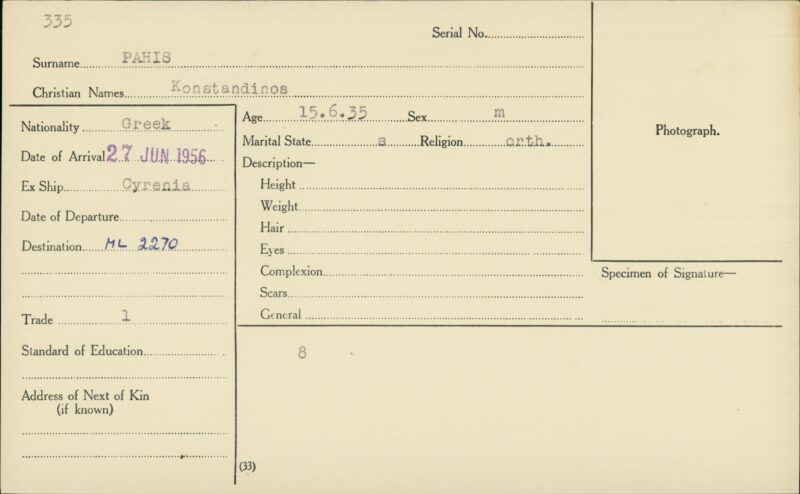 335
Serial No.
Surname PAHIS
Christian Names Konstandinos
Nationality Greek
Date of Arrival 27 JUN 1956
Ex Ship Cyrenia
Date of Departure
Destination ML 2270
Trade 1
Standard of Education
Address of Next of Kin
(if known)
Age 15.6.35 Sex m
Marital State s Religion orth.
Description—
Height
Weight
Hair
Eyes
Complexion
Scars
General
8
(33)
Photograph.
Specimen of Signature—